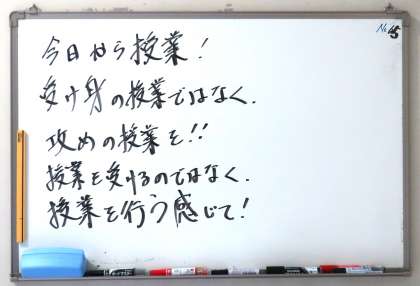 今日から授業！
受け身の授業ではなく.
攻めの授業を!!
授業を受けるのではなく.
授業を行う感じで！